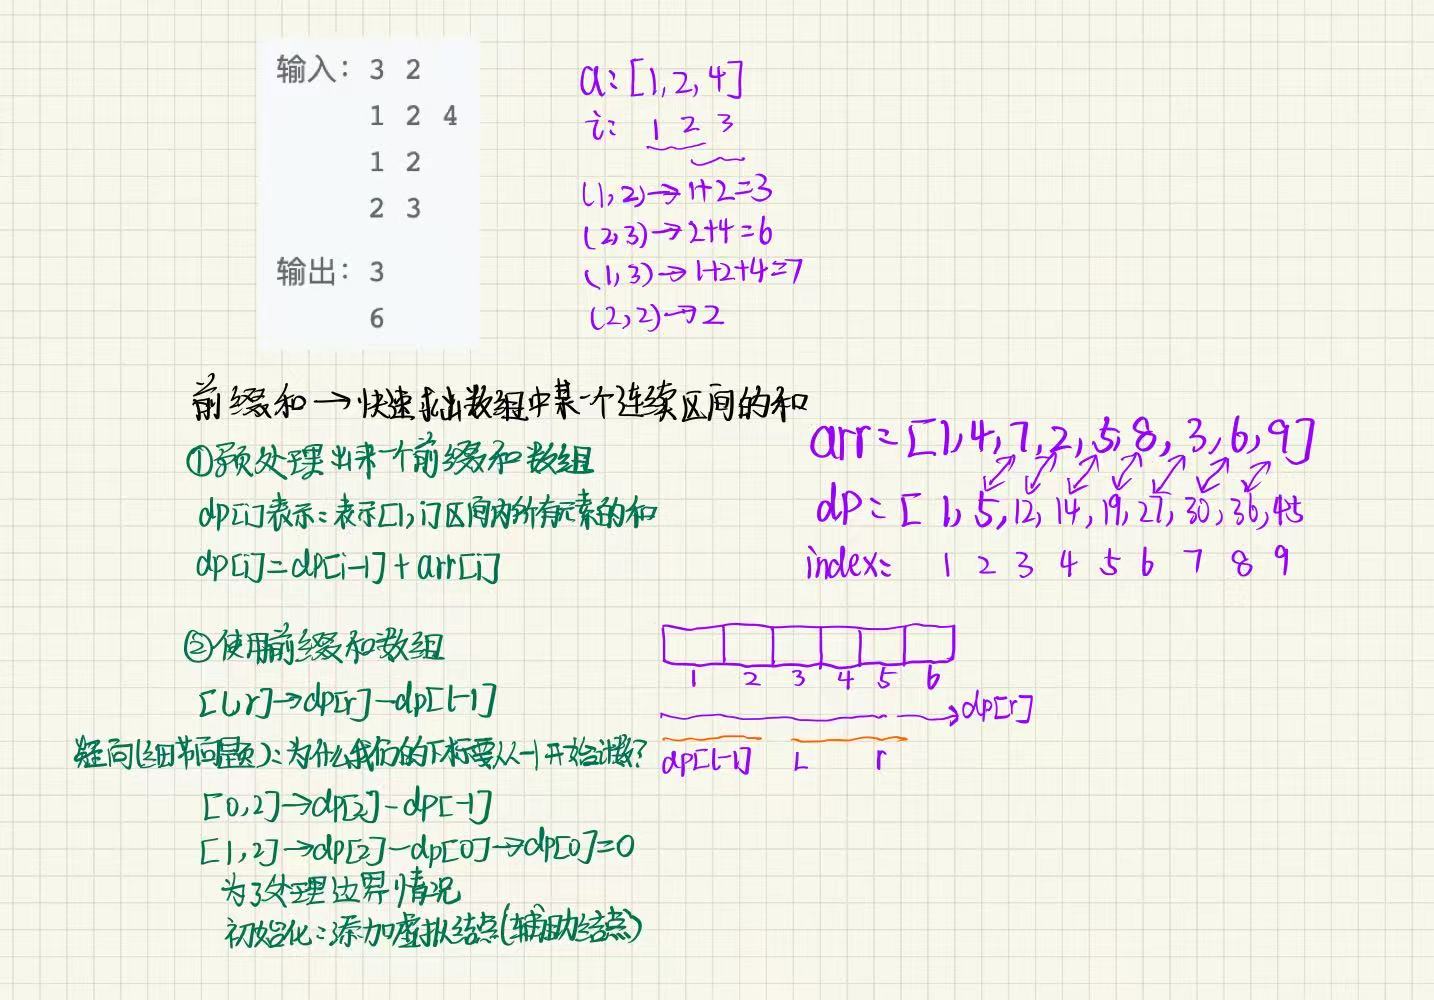 输入：3 2
1 2 4
1 2
2 3
输出：3
6
a: [1, 2, 4]
i: 1 2 3
(1, 2)→1+2=3
(2, 3)→2+4=6
(1, 3)→1+2+4=7
(2, 2)→2
前缀和→快速求出数组中某一个连续区间的和
①预处理出来一个前缀和数组
dp[i]表示：表示[1, i]区间内所有元素的和
dp[i]=dp[i-1]+arr[i]
arr=[1,4,7,2,5,8,3,6,9]
dp=[1,5,12,14,19,27,30,36,45
index= 1 2 3 4 5 6 7 8 9
②使用前缀和数组
[l,r]→dp[r]-dp[l-1]
疑问(细节问题)：为什么我们的下标要从一开始计数?
[0,2]→dp[2]-dp[-1]
[1,2]→dp[2]-dp[0]→dp[0]=0
为了处理边界情况
初始化：添加虚拟结点(辅助结点)
1 2 3 4 5 6
dp[r]
dp[l-1] L r